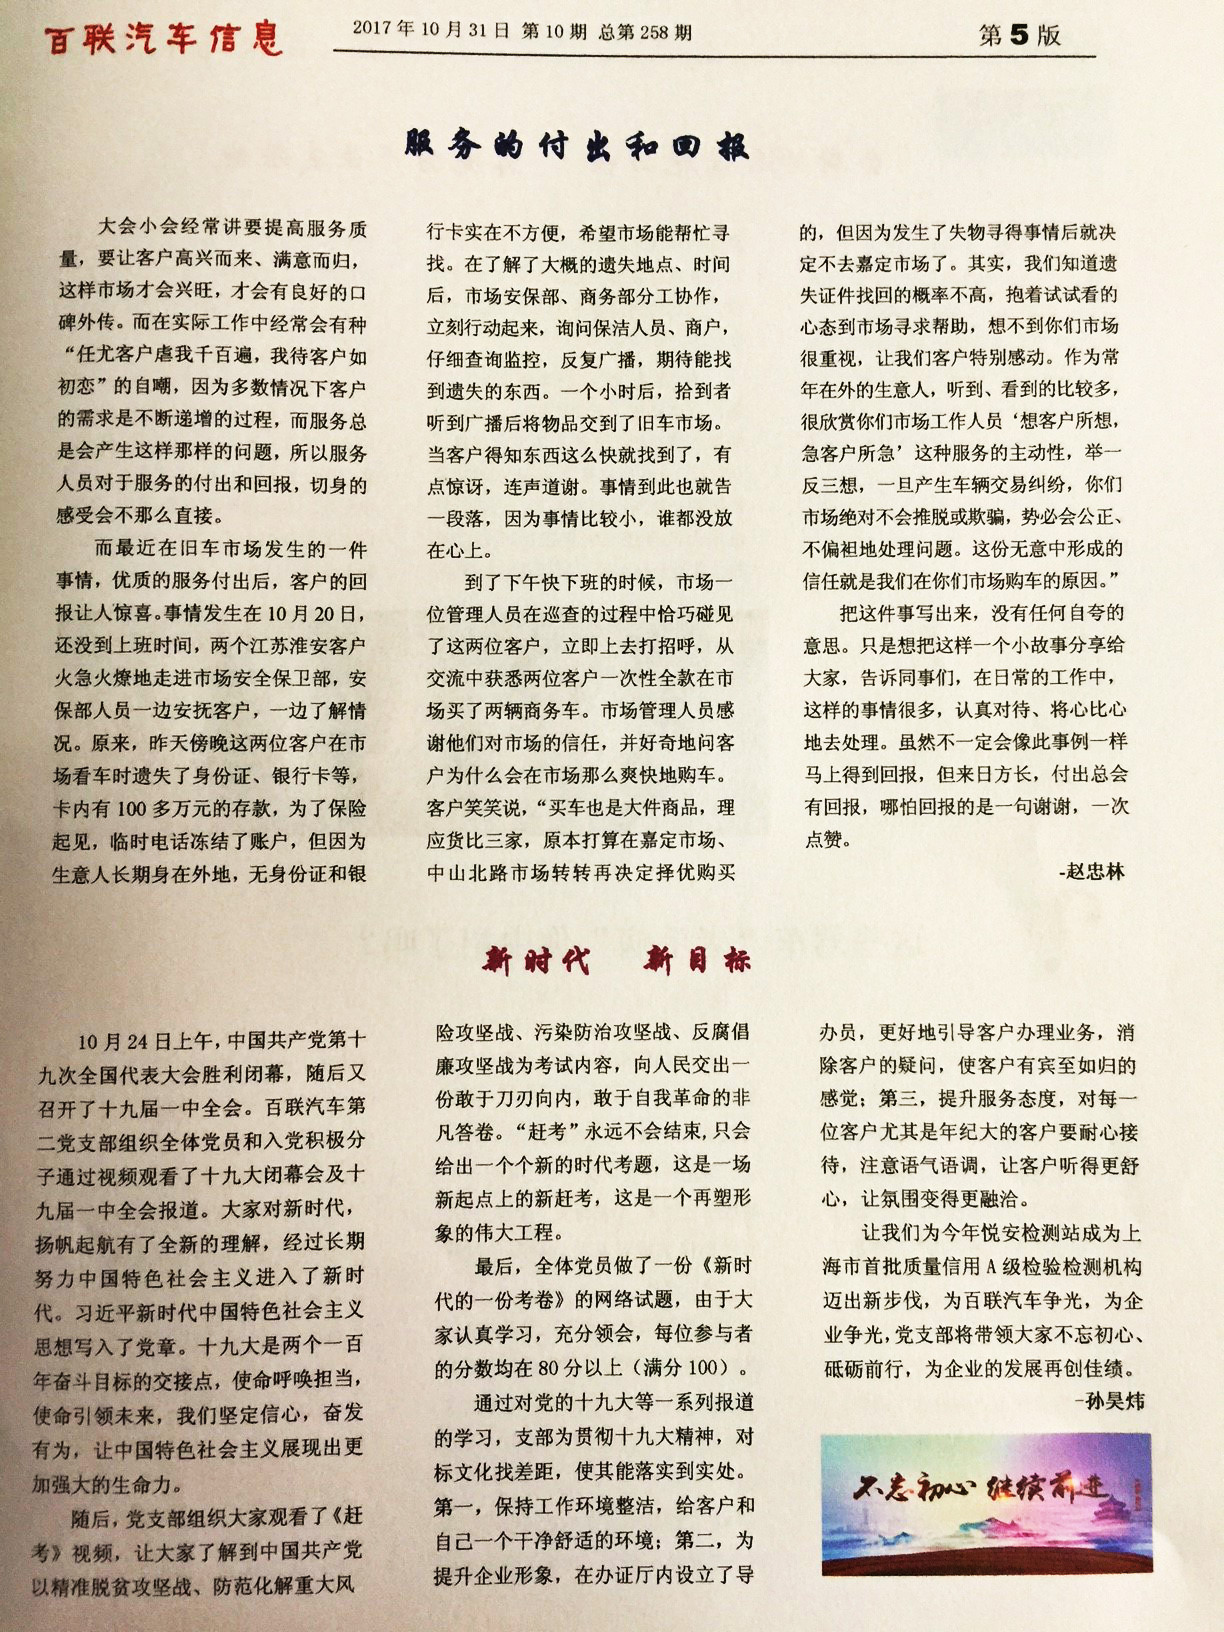 百联汽车信息
2017年10月31日 第10期 总第258期
第5版
服务的付出和回报
大会小会经常讲要提高服务质
量，要让客户高兴而来、满意而归，
这样市场才会兴旺，才会有良好的口
碑外传。而在实际工作中经常会有种
“任尤客户虐我千百遍，我待客户如
初恋”的自嘲，因为多数情况下客户
的需求是不断递增的过程，而服务总
是会产生这样那样的问题，所以服务
人员对于服务的付出和回报，切身的
感受会不那么直接。
而最近在旧车市场发生的一件
事情，优质的服务付出后，客户的回
报让人惊喜。事情发生在10月20日，
还没到上班时间，两个江苏淮安客户
火急火燎地走进市场安全保卫部，安
保部人员一边安抚客户，一边了解情
况。原来，昨天傍晚这两位客户在市
场看车时遗失了身份证、银行卡等，
卡内有100多万元的存款，为了保险
起见，临时电话冻结了账户，但因为
生意人长期身在外地，无身份证和银
行卡实在不方便，希望市场能帮忙寻
找。在了解了大概的遗失地点、时间
后，市场安保部、商务部分工协作，
立刻行动起来，询问保洁人员、商户，
仔细查询监控，反复广播，期待能找
到遗失的东西。一个小时后，拾到者
听到广播后将物品交到了旧车市场。
当客户得知东西这么快就找到了，有
点惊讶，连声道谢。事情到此也就告
一段落，因为事情比较小，谁都没放
在心上。
到了下午快下班的时候，市场一
位管理人员在巡查的过程中恰巧碰见
了这两位客户，立即上去打招呼，从
交流中获悉两位客户一次性全款在市
场买了两辆商务车。市场管理人员感
谢他们对市场的信任，并好奇地问客
户为什么会在市场那么爽快地购车。
客户笑笑说，“买车也是大件商品，理
应货比三家，原本打算在嘉定市场、
中山北路市场转转再决定择优购买
的，但因为发生了失物寻得事情后就决
定不去嘉定市场了。其实，我们知道遗
失证件找回的概率不高，抱着试试看的
心态到市场寻求帮助，想不到你们市场
很重视，让我们客户特别感动。作为常
年在外的生意人，听到、看到的比较多，
很欣赏你们市场工作人员‘想客户所想，
急客户所急’这种服务的主动性，举一
反三想，一旦产生车辆交易纠纷，你们
市场绝对不会推脱或欺骗，势必会公正、
不偏袒地处理问题。这份无意中形成的
信任就是我们在你们市场购车的原因。”
把这件事写出来，没有任何自夸的
意思。只是想把这样一个小故事分享给
大家，告诉同事们，在日常的工作中，
这样的事情很多，认真对待、将心比心
地去处理。虽然不一定会像此事例一样
马上得到回报，但来日方长，付出总会
有回报，哪怕回报的是一句谢谢，一次
点赞。
-赵忠林
新时代 新目标
10月24日上午，中国共产党第十
九次全国代表大会胜利闭幕，随后又
召开了十九届一中全会。百联汽车第
二党支部组织全体党员和入党积极分
子通过视频观看了十九大闭幕会及十
九届一中全会报道。大家对新时代，
扬帆起航有了全新的理解，经过长期
努力中国特色社会主义进入了新时
代。习近平新时代中国特色社会主义
思想写入了党章。十九大是两个一百
年奋斗目标的交接点，使命呼唤担当，
使命引领未来，我们坚定信心，奋发
有为，让中国特色社会主义展现出更
加强大的生命力。
随后，党支部组织大家观看了《赶
考》视频，让大家了解到中国共产党
以精准脱贫攻坚战、防范化解重大风
险攻坚战、污染防治攻坚战、反腐倡
廉攻坚战为考试内容，向人民交出一
份敢于刀刃向内，敢于自我革命的非
凡答卷。“赶考”永远不会结束,只会
给出一个个新的时代考题，这是一场
新起点上的新赶考，这是一个再塑形
象的伟大工程。
最后，全体党员做了一份《新时
代的一份考卷》的网络试题，由于大
家认真学习，充分领会，每位参与者
的分数均在80分以上（满分100）。
通过对党的十九大等一系列报道
的学习，支部为贯彻十九大精神，对
标文化找差距，使其能落实到实处。
第一，保持工作环境整洁，给客户和
自己一个干净舒适的环境；第二，为
提升企业形象，在办证厅内设立了导
办员，更好地引导客户办理业务，消
除客户的疑问，使客户有宾至如归的
感觉；第三，提升服务态度，对每一
位客户尤其是年纪大的客户要耐心接
待，注意语气语调，让客户听得更舒
心，让氛围变得更融洽。
让我们为今年悦安检测站成为上
海市首批质量信用A级检验检测机构
迈出新步伐，为百联汽车争光，为企
业争光，党支部将带领大家不忘初心、
砥砺前行，为企业的发展再创佳绩。
-孙昊炜
不忘初心 继续前进